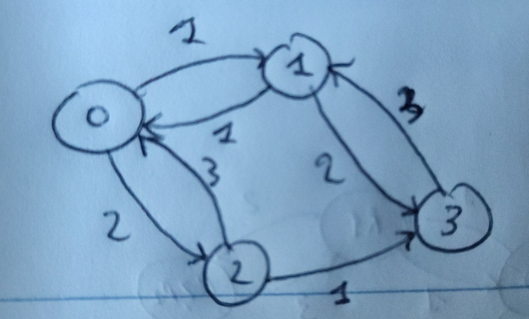 1
1
0
1
3
3
2
2
3
2
1